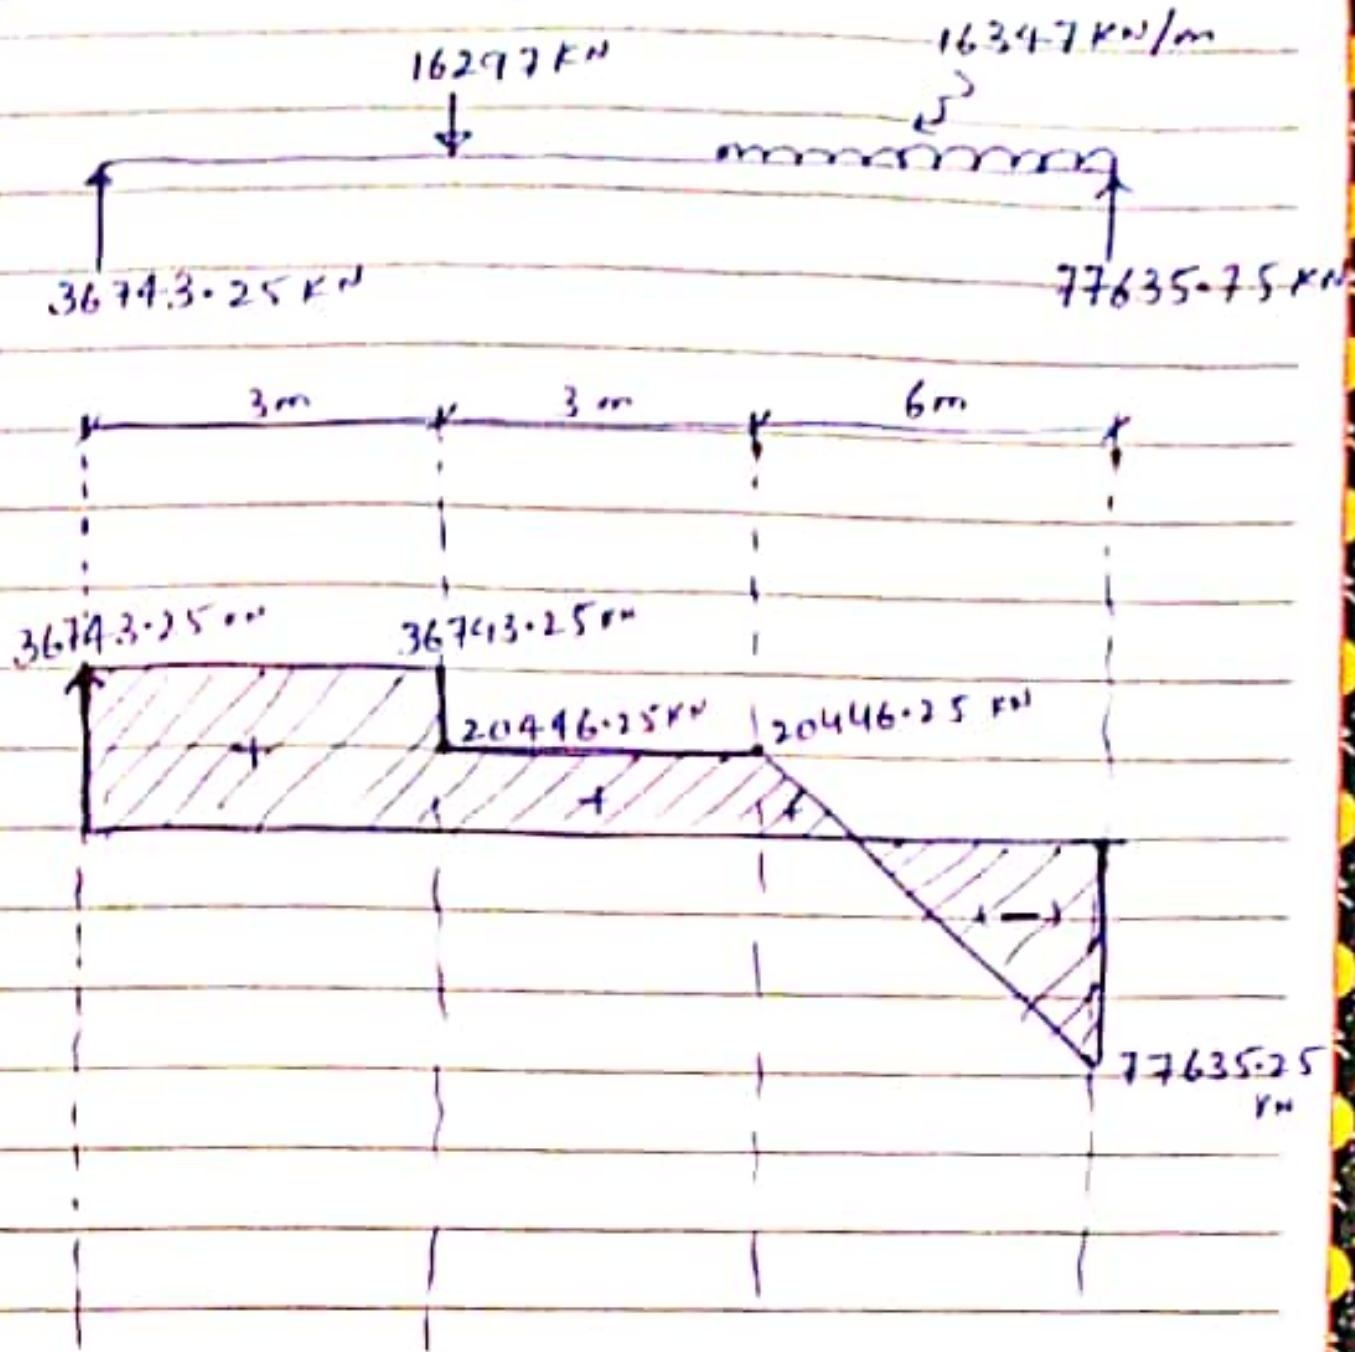 16297 KN
16347 KN/m
36743.25 KN
77635.75 KN
3m
3m
6m
36743.25 KN
36743.25 KN
20446.25 KN
20446.25 KN
+
+
+
-
77635.25
KN